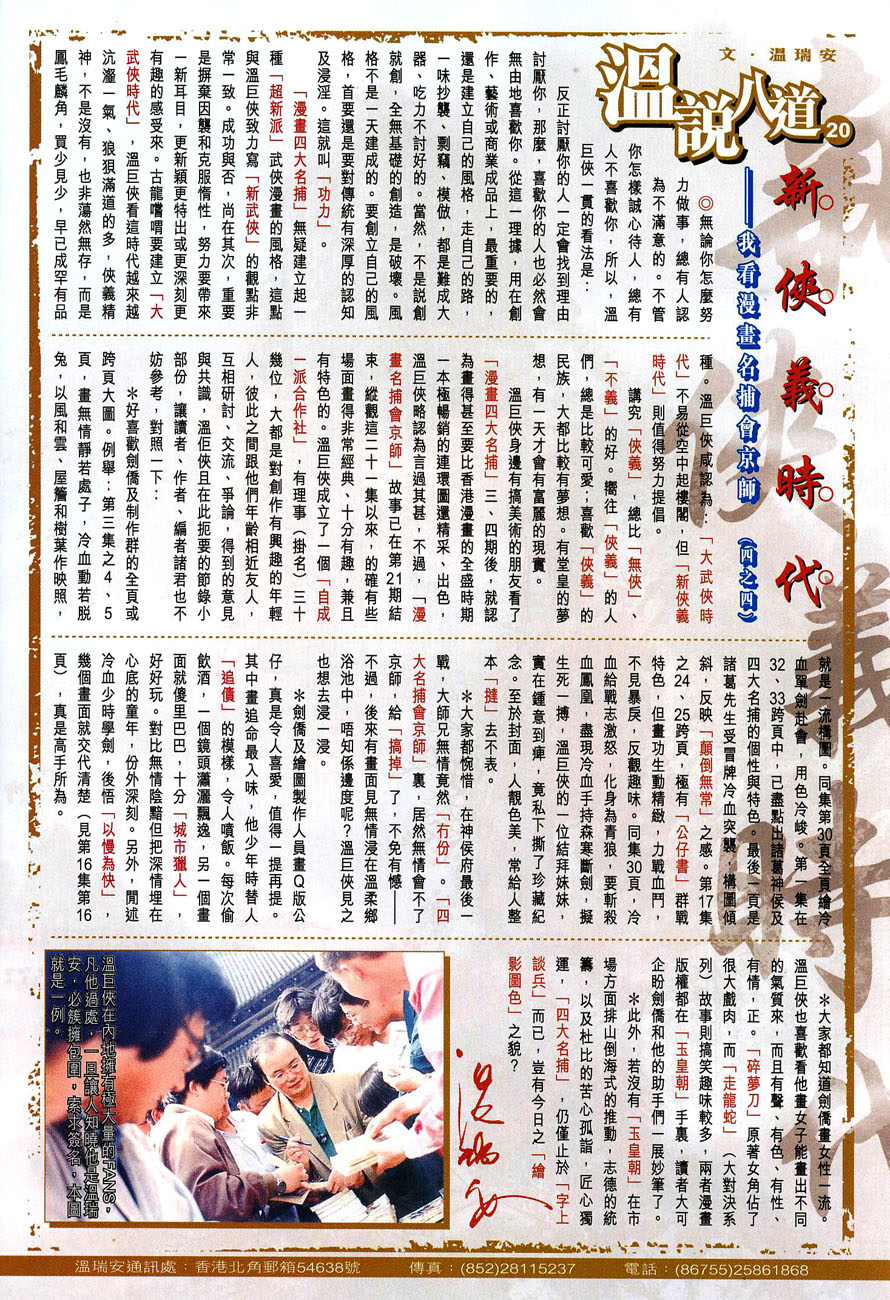 文．溫瑞安
溫說八道20
新俠義時代
——我看漫畫名捕會京師（四之四）
◎無論你怎麼努
力做事，總有人認
為不滿意的。不管
你怎樣誠心待人，總有
人不喜歡你，所以，溫
巨俠一貫的看法是：
反正討厭你的人一定會找到理由
討厭你，那麼，喜歡你的人也必然會
無由地喜歡你。從這一理據，用在創
作、藝術或商業成品上，最重要的，
還是建立自己的風格，走自己的路，
一味抄襲、剽竊、模倣，都是難成大
器、吃力不討好的。當然，不是說創
就創，全無基礎的創造，是破壞。風
格不是一天建成的。要創立自己的風
格，首要還是要對傳統有深厚的認知
及浸淫。這就叫「功力」。
「漫畫四大名捕」無疑建立起一
種「超新派」武俠漫畫的風格，這點
與溫巨俠致力寫「新武俠」的觀點非
常一致。成功與否，尚在其次，重要
是摒棄因襲和克服惰性，努力要帶來
一新耳目，更新穎更特出或更深刻更
有趣的感受來。古龍嚐謂要建立「大
武俠時代」，溫巨俠看這時代越來越
沆瀣一氣、狼狽滿道的多，俠義精
神，不是沒有，也非蕩然無存，而是
鳳毛麟角，買少見少，早已成罕有品
種。溫巨俠咸認為：「大武俠時
代」不易從空中起樓閣，但「新俠義
時代」則值得努力提倡。
講究「俠義」，總比「無俠」、
「不義」的好。嚮往「俠義」的人
們，總是比較可愛；喜歡「俠義」的
民族，大都比較有夢想。有堂皇的夢
想，有一天才會有富麗的現實。
溫巨俠身邊有搞美術的朋友看了
「漫畫四大名捕」三、四期後，就認
為畫得甚至要比香港漫畫的全盛時期
一本極暢銷的連環圖還精采、出色，
溫巨俠略認為言過其甚，不過，「漫
畫名捕會京師」故事已在第21期結
束，縱觀這二十一集以來，的確有些
場面畫得非常經典、十分有趣，兼且
有特色的。溫巨俠成立了一個「自成
一派合作社」，有理事（掛名）三十
幾位，大都是對創作有興趣的年輕
人，彼此之間跟他們年齡相近友人，
互相研討、交流、爭論，得到的意見
與共識，溫佢俠且在此扼要的節錄小
部份，讓讀者、作者、編者諸君也不
妨參考，對照一下：
＊好喜歡劍僑及制作群的全頁或
跨頁大圖。例舉：第三集之4、5
頁，畫無情靜若處子，冷血動若脱
兔，以風和雲、屋簷和樹葉作映照，
就是一流構圖。同集第30頁全頁繪冷
血單劍赴會，用色冷峻。第一集在
32、33跨頁中，已盡點出諸葛神侯及
四大名捕的個性與特色。最後一頁是
諸葛先生受冒牌冷血突襲，構圖傾
斜，反映「顛倒無常」之感。第17集
之24、25跨頁，極有「公仔書」群戰
特色，但畫功生動精緻，力戰血鬥，
不見暴戾，反觀趣味。同集30頁，冷
血給戰志激怒，化身為青狼，要斬殺
血鳳凰，盡現冷血手持森寒斷劍，擬
生死一搏，溫巨俠的一位結拜妹妹，
實在鍾意到痺，竟私下撕了珍藏紀
念。至於封面，人靚色美，常給人整
本「撻」去不表。
＊大家都惋惜，在神侯府最後一
戰，大師兄無情竟然「冇份」。「四
大名捕會京師」裏，居然無情會不了
京師，給「搞掉」了，不免有憾——
不過，後來有畫面見無情浸在溫柔鄉
浴池中，唔知係邊度呢？溫巨俠見之
也想去浸一浸。
＊劍僑及繪圖製作人員畫Q版公
仔，真是令人喜愛，值得一提再提。
其中畫追命最入味，他少年時替人
「追債」的模樣，令人噴飯。每次偷
飲酒，一個鏡頭瀟灑飄逸，另一個畫
面就傻里巴巴，十分「城市獵人」，
好好玩。對比無情陰黯但把深情埋在
心底的童年，份外深刻。另外，閒述
冷血少時學劍，後悟「以慢為快」，
幾個畫面就交代清楚（見第16集第16
頁），真是高手所為。
＊大家都知道劍僑畫女性一流。
溫巨俠也喜歡看他畫女子能畫出不同
的氣質來，而且有聲、有色、有性、
有情，正。「碎夢刀」原著女角佔了
很大戲肉，而「走龍蛇」（大對決系
列）故事則搞笑趣味較多，兩者漫畫
版權都在「玉皇朝」手裏，讀者大可
企盼劍僑和他的助手們一展妙筆了。
＊此外，若沒有「玉皇朝」在市
場方面排山倒海式的推動，志德的統
籌，以及杜比的苦心孤詣，匠心獨
運，「四大名捕」，仍僅止於「字上
談兵」而已，豈有今日之「繪
影圖色」之貌？
溫瑞安
溫巨俠在內地擁有極大量的FANS，
凡他過處，一旦讓人知曉他是溫瑞
安，必簇擁包圍，索求簽名，本圖
就是一例。
溫瑞安通訊處：香港北角郵箱54638號　傳真：(852)28115237　電話：(86755)25861868